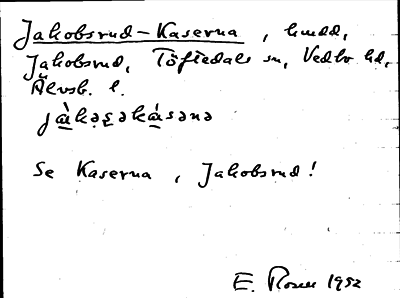 Jakobsrud-Kaserna, hmdd,
Jakobsrud, Töftedals sn, Vedbo hd,
Älvsb. l.
jà̱kəs̱əká̱sənə
Se Kaserna, Jakobsrud!
E. Rosen 1952